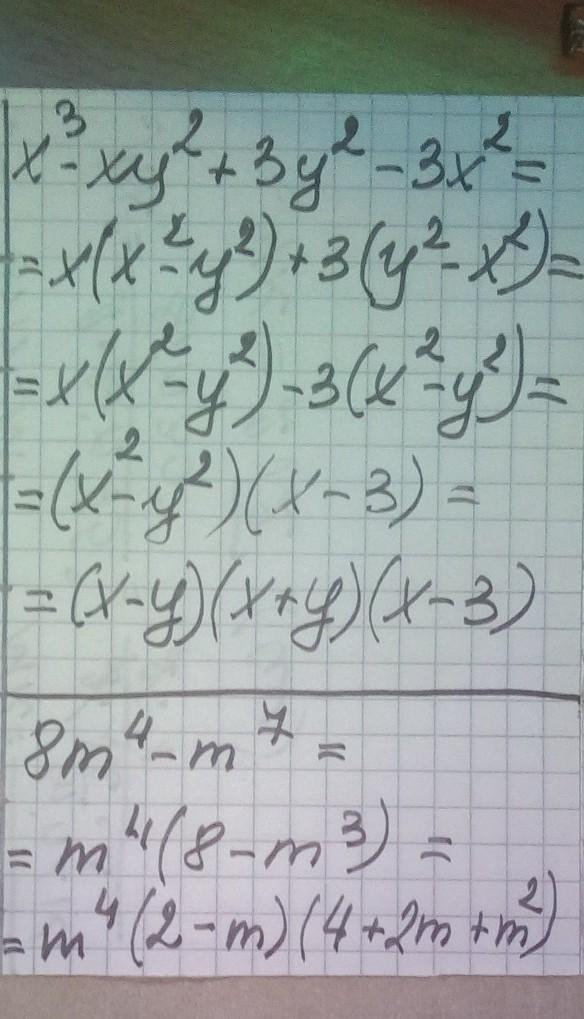 x³ - xy² + 3y² - 3x² =
= x(x² - y²) + 3(y² - x²) =
= x(x² - y²) - 3(x² - y²) =
= (x² - y²)(x - 3) =
= (x - y)(x + y)(x - 3)
8m⁴ - m⁷ =
= m⁴(8 - m³) =
= m⁴(2 - m)(4 + 2m + m²)